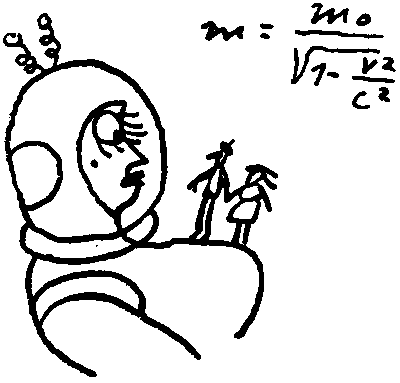 m = m₀ / √(1 - v²/c²)